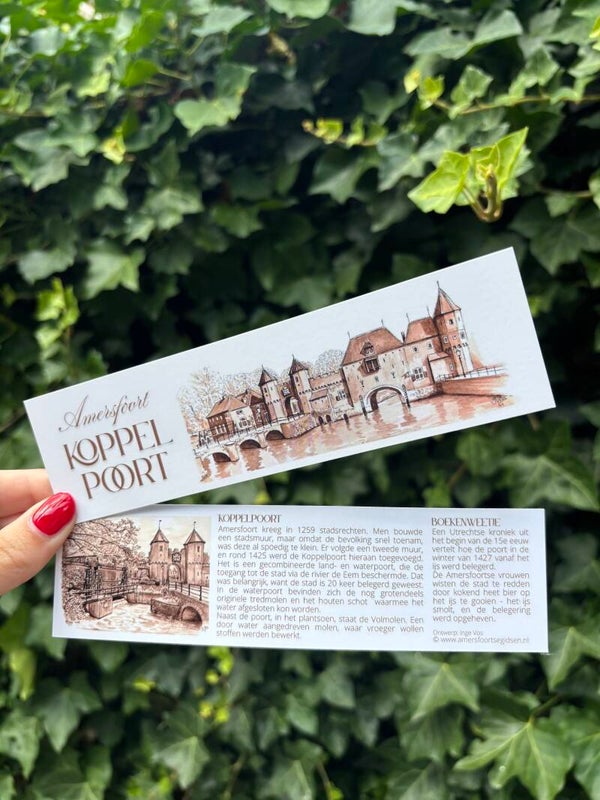 Amersfoort
KOPPEL
POORT
KOPPELPOORT
Amersfoort kreeg in 1259 stadsrechten. Men bouwde
een stadsmuur, maar omdat de bevolking snel toenam,
was deze al spoedig te klein. Er volgde een tweede muur,
en rond 1425 werd de Koppelpoort hieraan toegevoegd.
Het is een gecombineerde land- en waterpoort, die de
toegang tot de stad via de rivier de Eem beschermde. Dat
was belangrijk, want de stad is 20 keer belegerd geweest.
In de waterpoort bevinden zich de nog grotendeels
originele tredmolen en het houten schot waarmee het
water afgesloten kon worden.
Naast de poort, in het plantsoen, staat de Volmolen. Een
door water aangedreven molen, waar vroeger wollen
stoffen werden bewerkt.
BOEKENWEETJE
Een Utrechtse kroniek uit
het begin van de 15e eeuw
vertelt hoe de poort in de
winter van 1427 vanaf het
ijs werd belegerd.
De Amersfoortse vrouwen
wisten de stad te redden
door kokend heet bier op
het ijs te gooien - het ijs
smolt, en de belegering
werd opgeheven.
Ontwerp: Inge Vos
© www.amersfoortsegidsen.nl